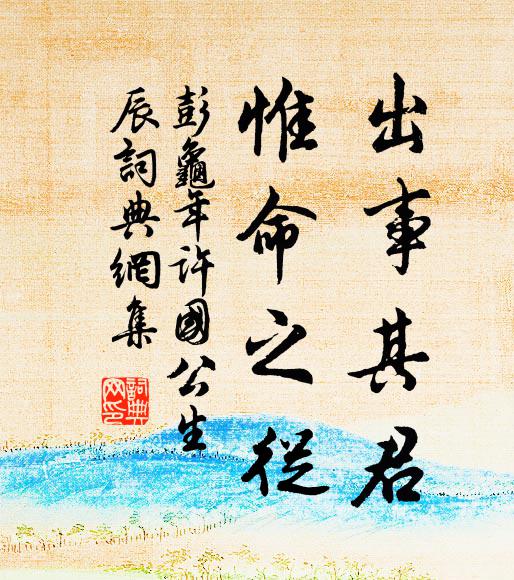 出事其君
惟命之從
彭龜年許國公生
辰詞典網集
詞典
网印